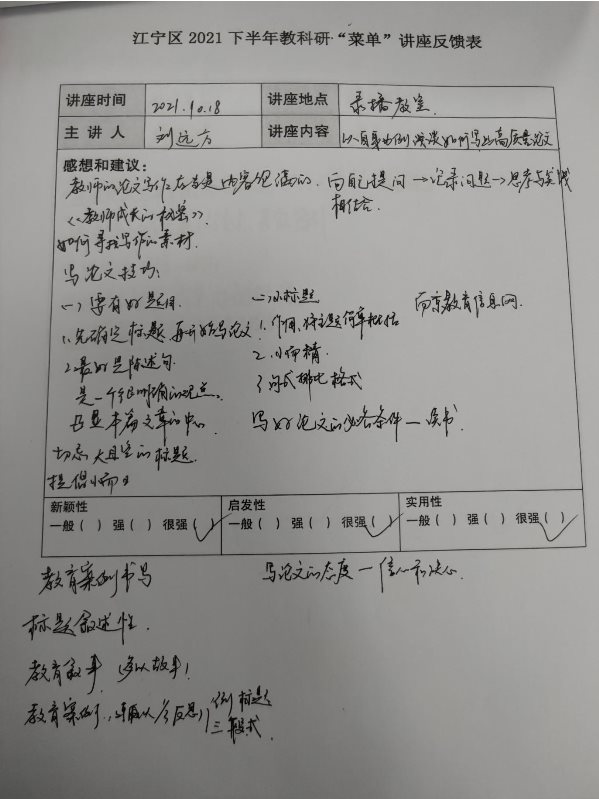 江宁区2021下半年教科研·“菜单”讲座反馈表
讲座时间 2021.10.18 讲座地点 录播教室
主讲人 刘远方 讲座内容 以自身为例谈谈如何写出高质量论文
感想和建议：
教师的论文写作应当是内容饱满的. 向自己提问→记录问题→思考与实践
相结合.
《教师成长的秘密》.
如何寻找写作的素材.
写论文技巧:
一)要有好题目. 二)小标题 南京教育信息网.
1.先确定标题,再开始写论文 1.作用:将主题简单概括
2.最好是陈述句. 2.小而精
是一个鲜明的观点. 3.句式排比格式
凸显本篇文章的中心 写好论文的必备条件—读书
切忌大且空的标题.
提倡小而
新颖性 启发性 实用性
一般( ) 强( ) 很强(✓) 一般( ) 强( ) 很强(✓) 一般( ) 强( ) 很强(✓)
教育案例书写 写论文的态度—信心和决心.
标题叙述性.
教育叙事 (多以故事)
教育案例 反思) 例 标题
三段式.